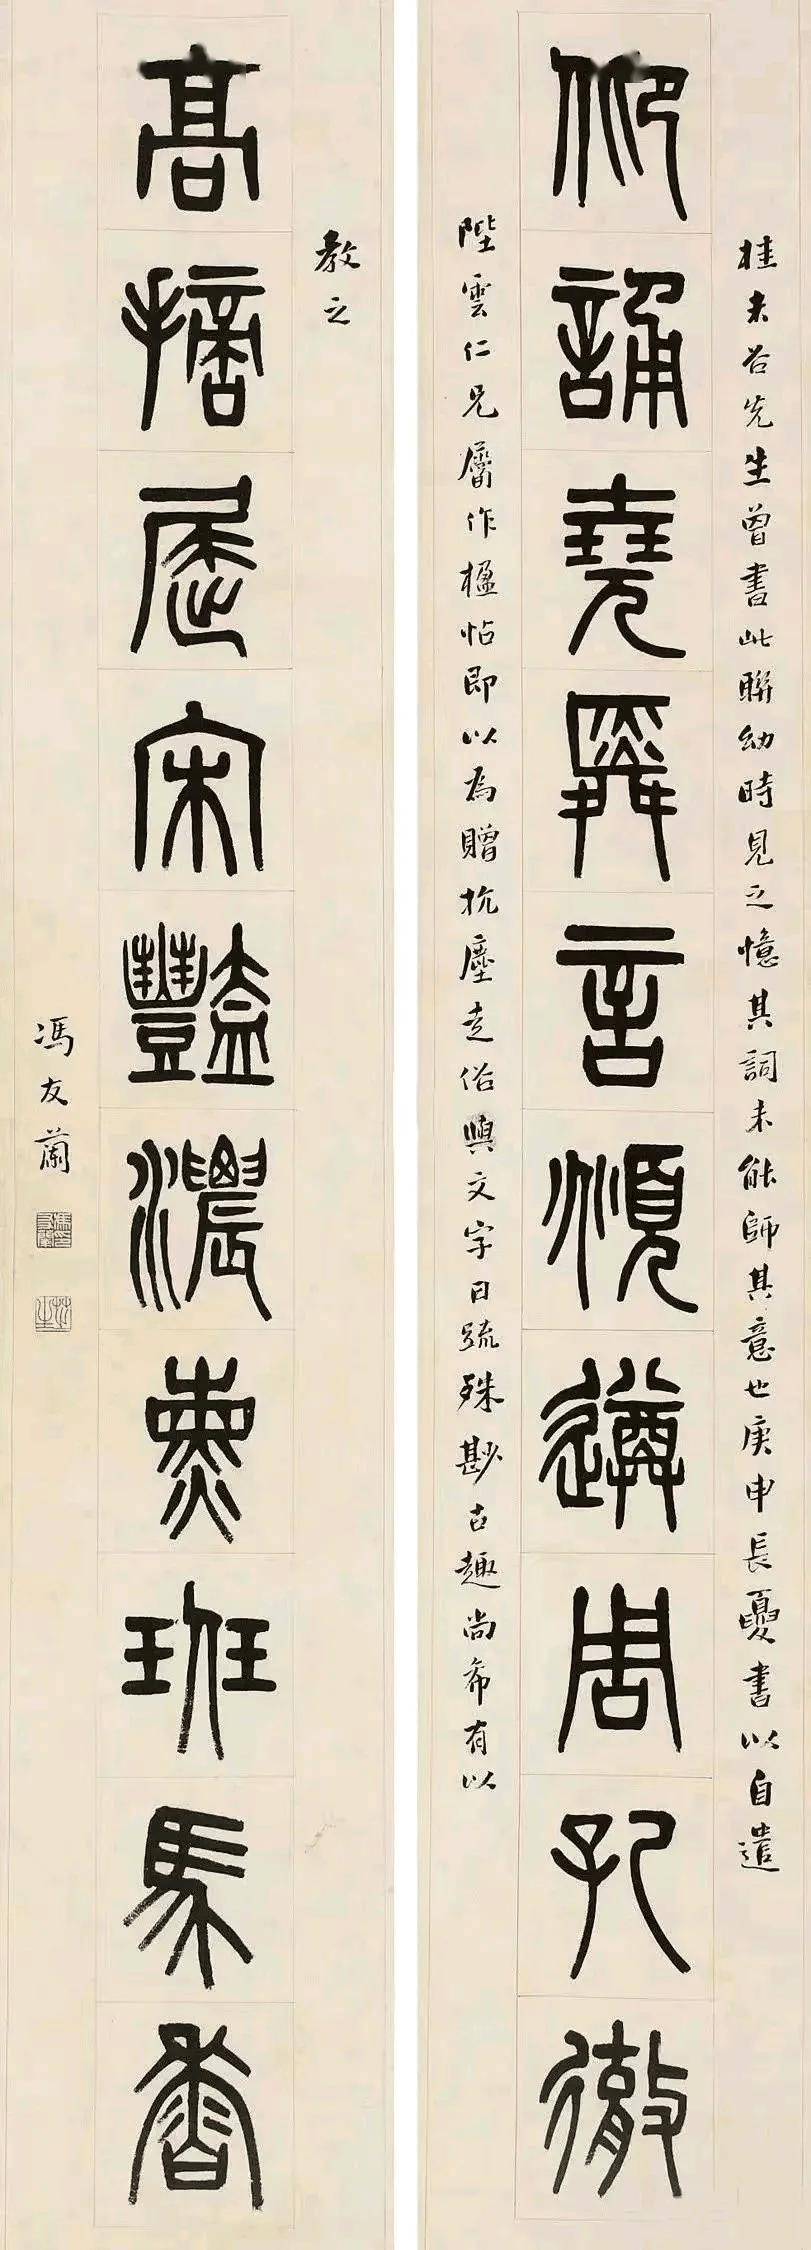 桂未谷先生曾書此聯幼時見之憶其詞未能師其意也庚申長夏書以自遣
仰誦堯舜言頫遵周孔徹
陛雲仁兄屬作楹帖即以為贈抗塵走俗與文字日疏殊尠古趣尚希有以
教之
高摘屈宋豔濃熏班馬香
馮友蘭